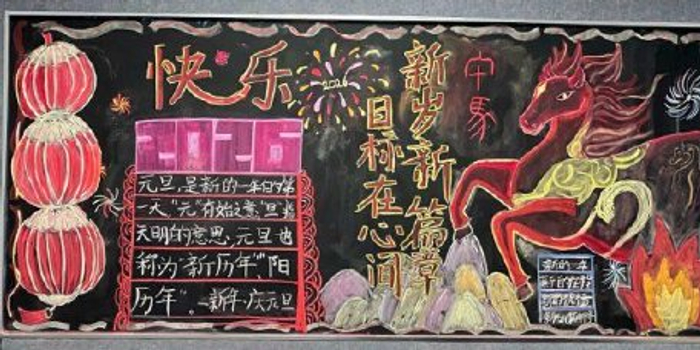 快乐
2026
2026
元旦,是新的一年的第
一天"元"有始之意"旦"指
天明的意思,元旦也
称为"新历年""阳
历年"。—新年·庆元旦
新岁新篇章
目标在心间
午馬
新的一年